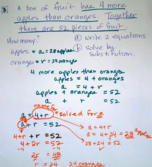 A bowl of fruit has 4 more
apples than oranges. Together
there are 52 pieces of fruit
How many? a) write 2 equations
apples = a = 28 apples b) solve by
oranges = r = 24 oranges substitution.
4 more apples than oranges
apples = 4 + oranges
a = 4 + r
apples + oranges = 52
a + r = 52
a = 4+r solved for a
4+r + r = 52 a = 4+r
4 + 2r = 52
2r = 48